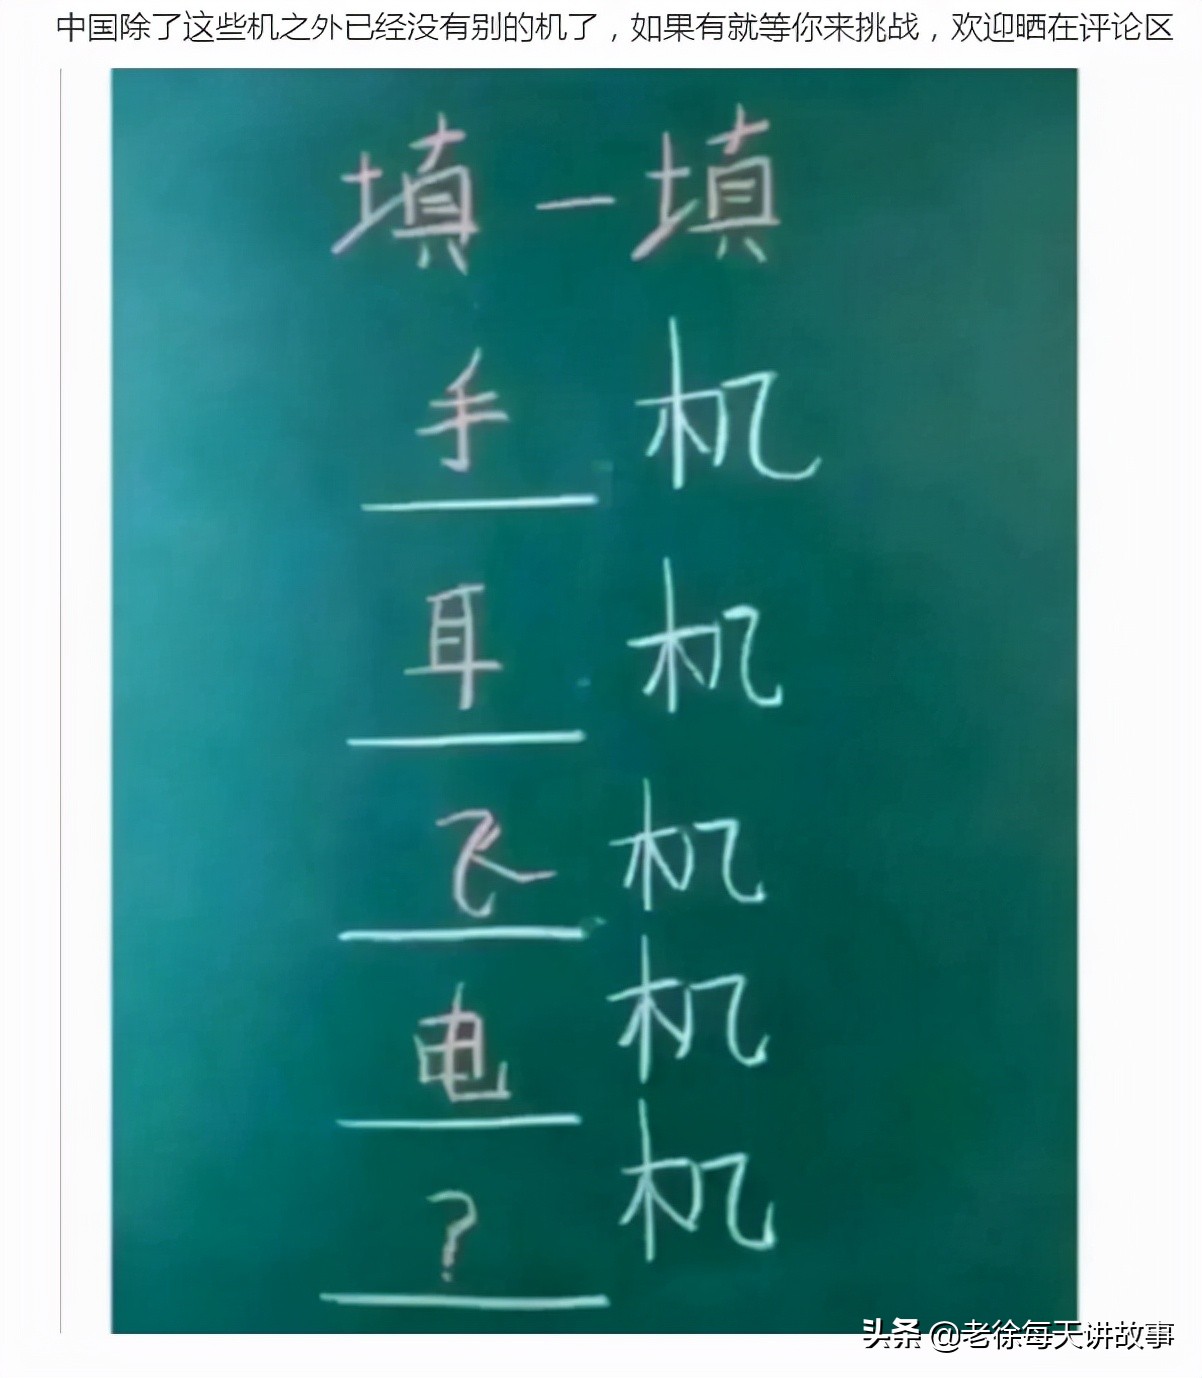 中国除了这些机之外已经没有别的机了，如果有就等你来挑战，欢迎晒在评论区
填一填
手 机
耳 机
飞 机
电 机
? 机
头条 @老徐每天讲故事